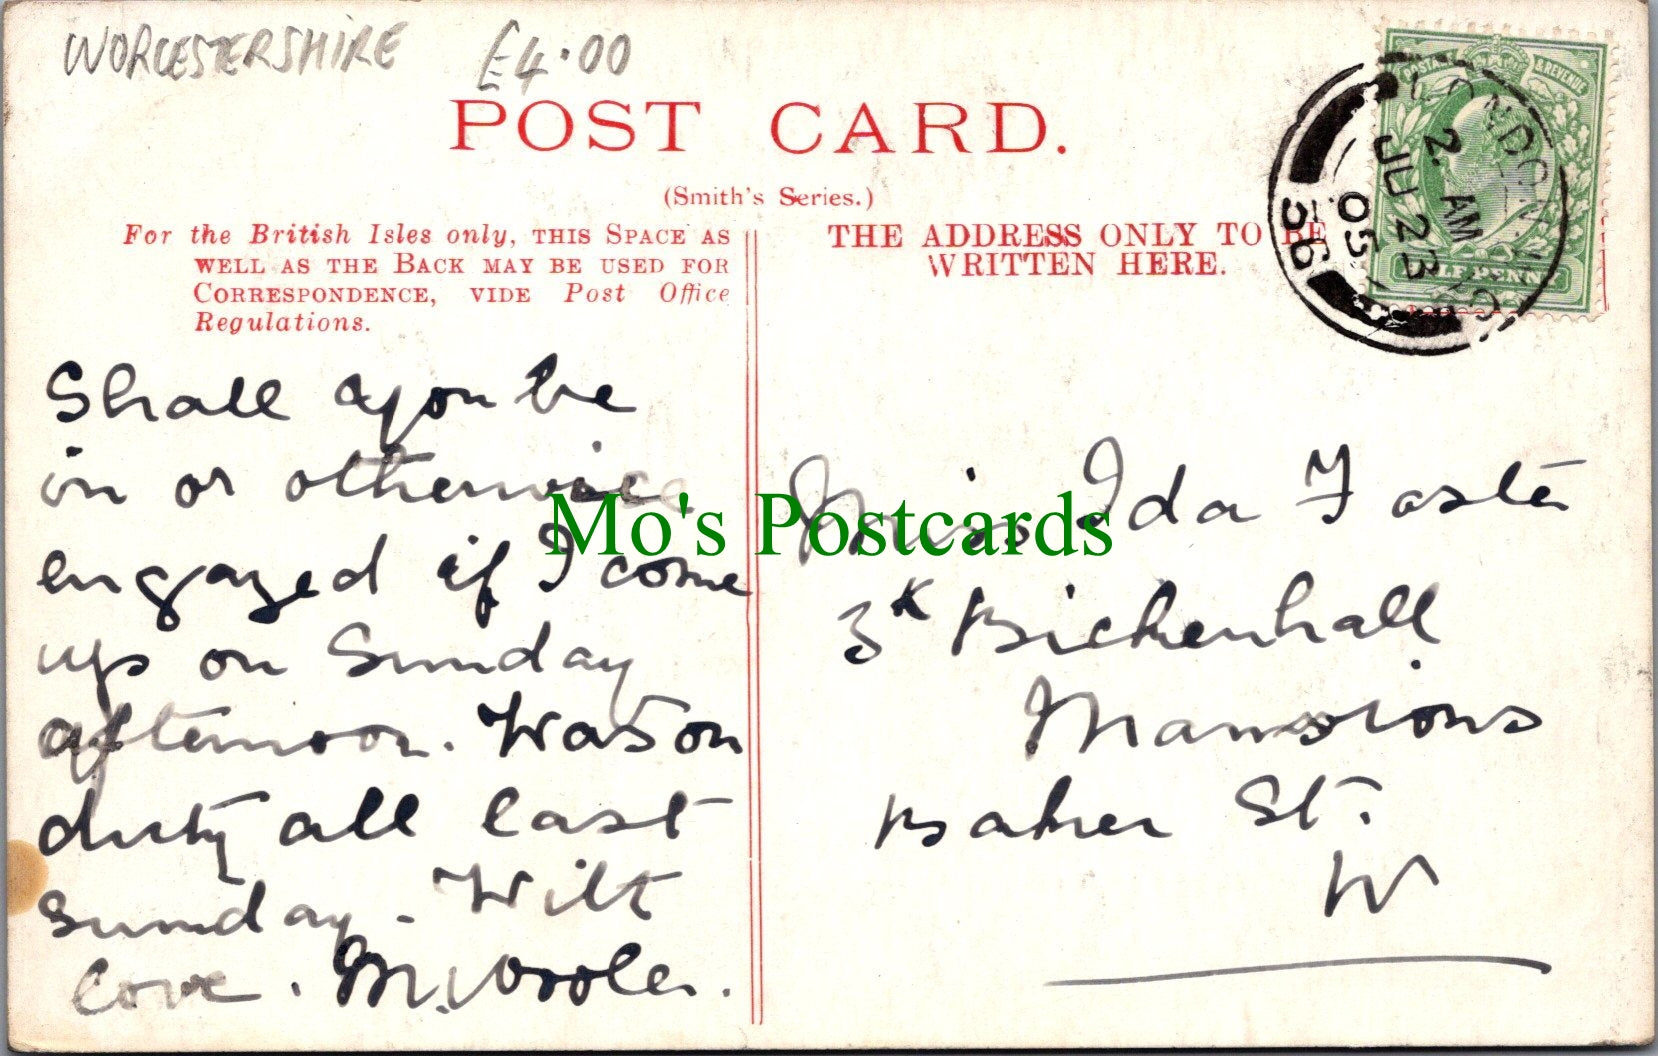 WORCESTERSHIRE £4.00
POST CARD.
(Smith's Series.)
For the British Isles only, THIS SPACE AS
WELL AS THE BACK MAY BE USED FOR
CORRESPONDENCE, VIDE Post Office
Regulations.
THE ADDRESS ONLY TO BE
WRITTEN HERE.
LONDON
2. AM
JU 23
05
36
POSTAGE & REVENUE
HALFPENNY
Shall you be
in or otherwise
engaged if I come
up on Sunday
afternoon. Was on
duty all last
Sunday - With
love. M.
Miss Ida Foster
3K Bickenhall
Mansions
Baker St.
W
Mo's Postcards